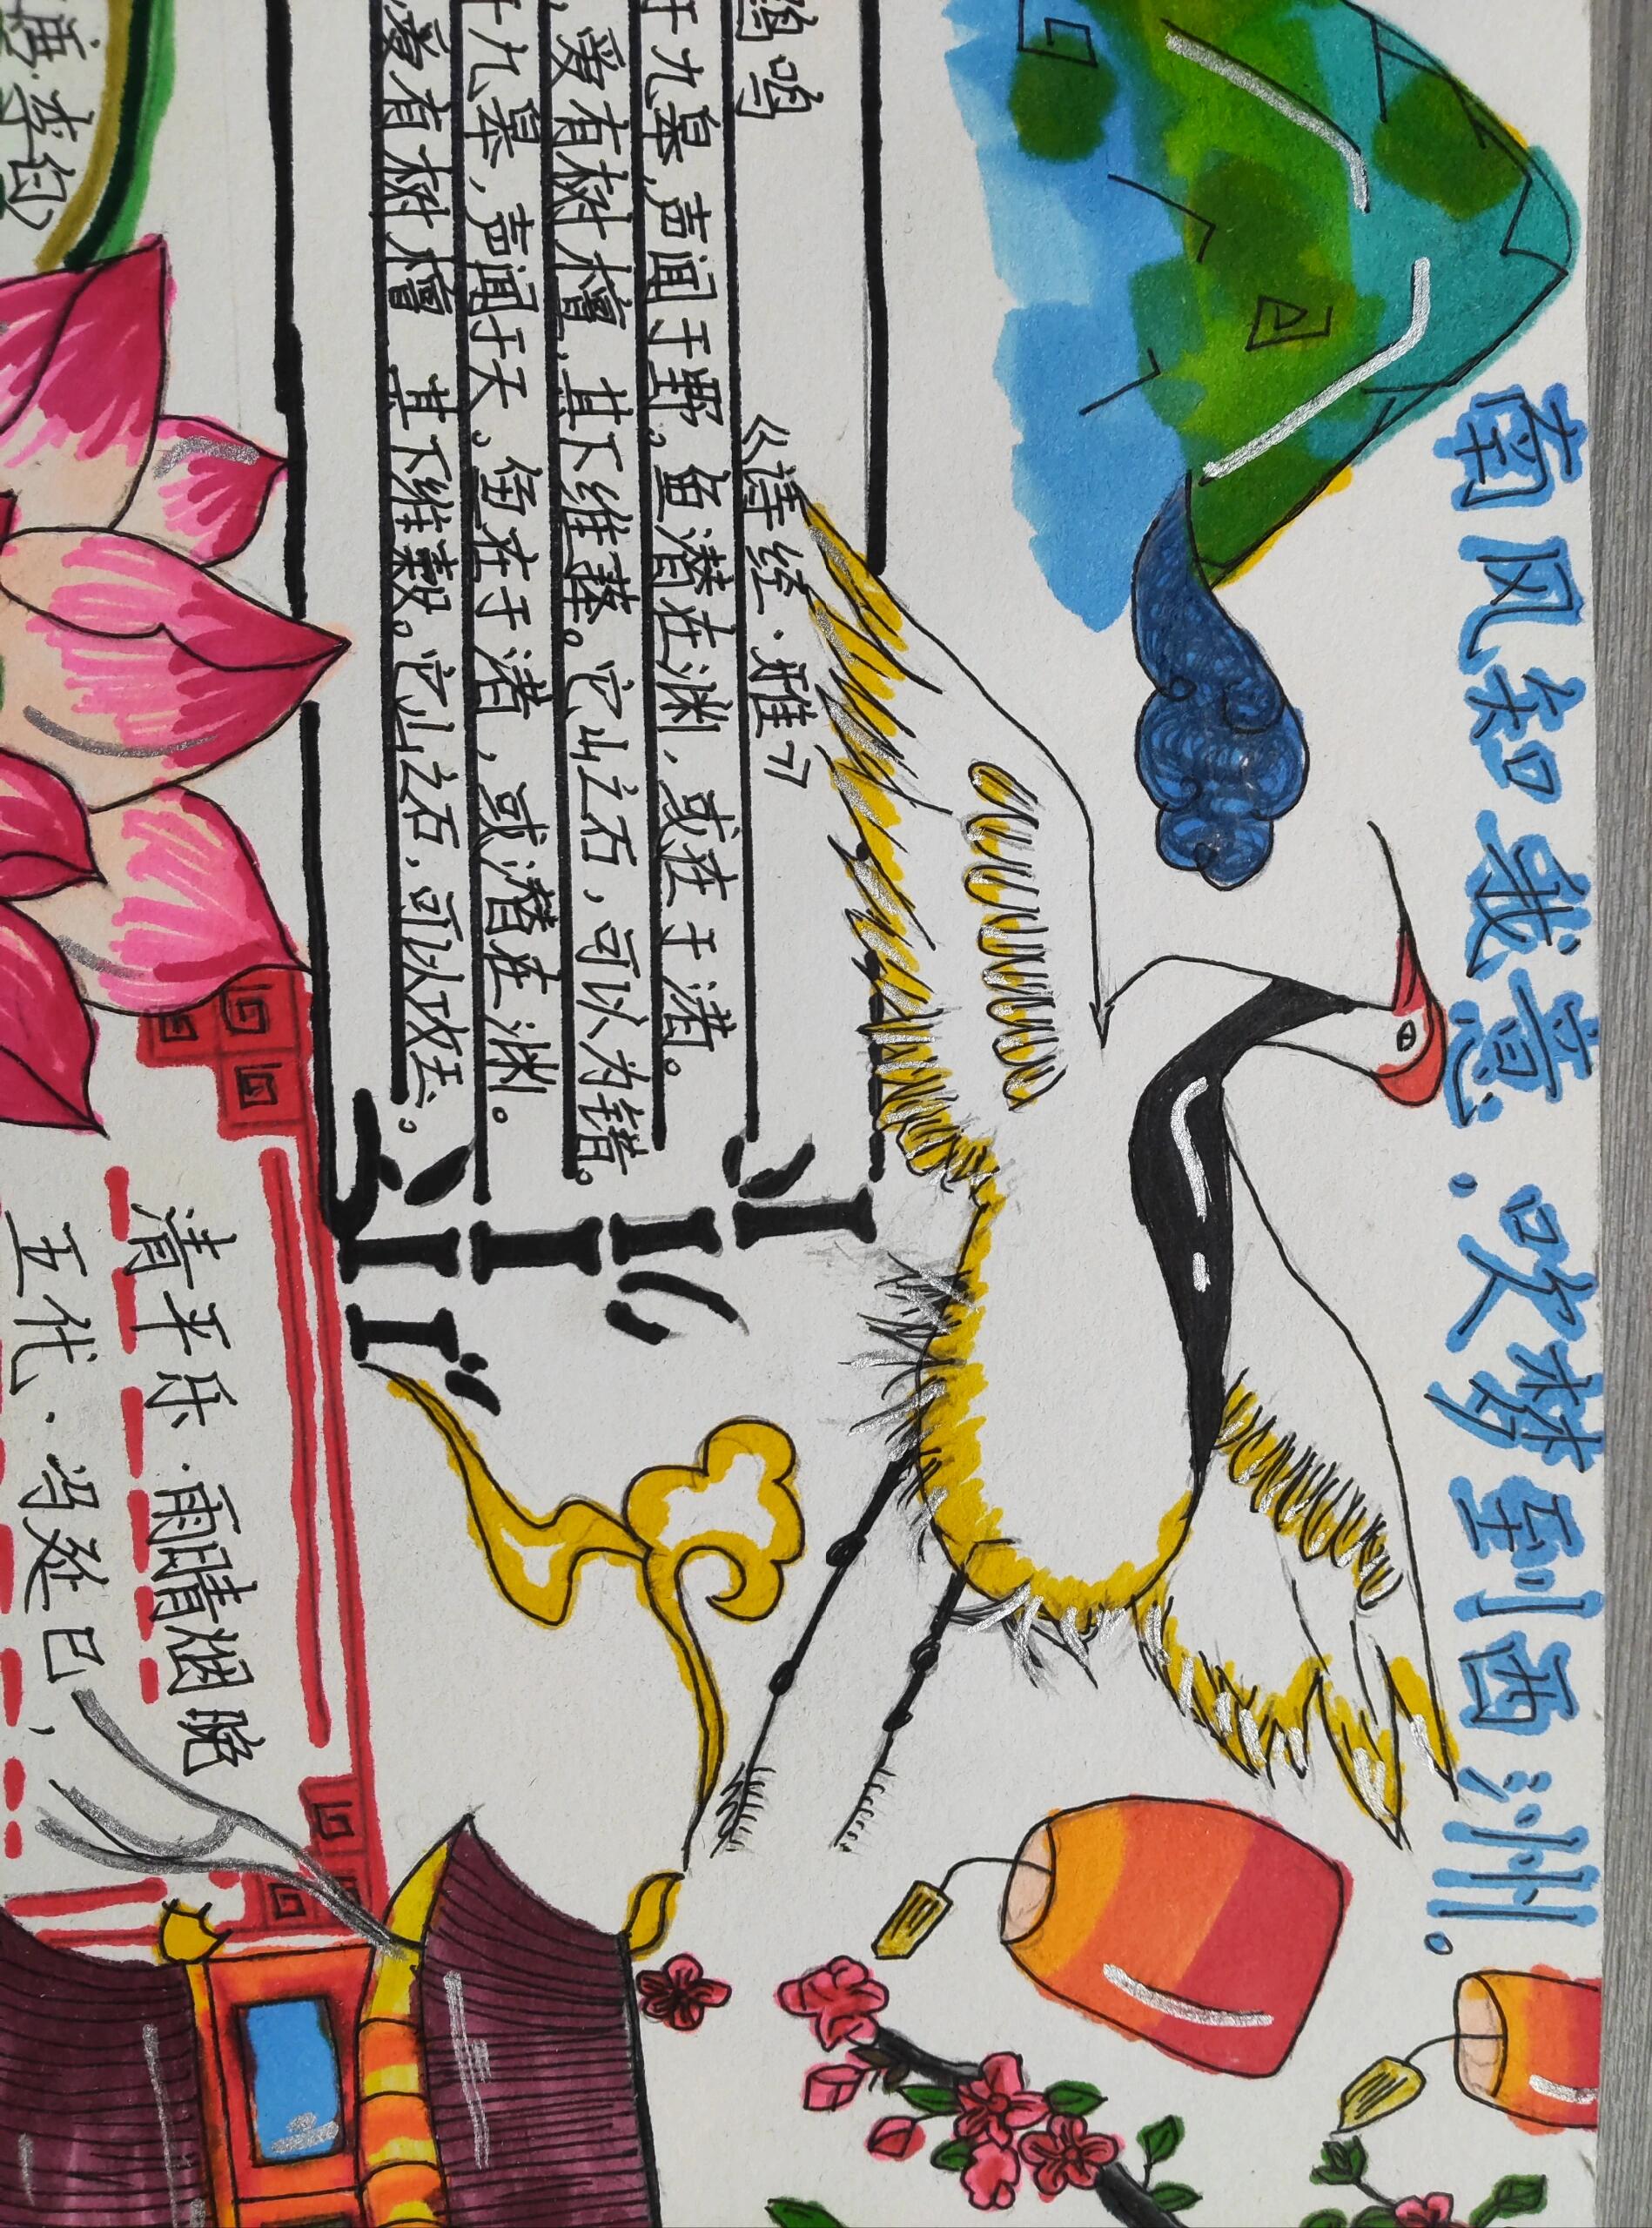 南风知我意.吹梦到西洲。
鹤鸣
《诗经·雅》
于九皋,声闻于野。鱼潜在渊,或在于渚。
爰有树檀,其下维萚。它山之石,可以为错。
于九皋,声闻于天。鱼在于渚,或潜在渊。
爰有树檀 其下维榖。它山之石,可以攻玉。
李白
清平乐·雨晴烟晚
五代·冯延巳,